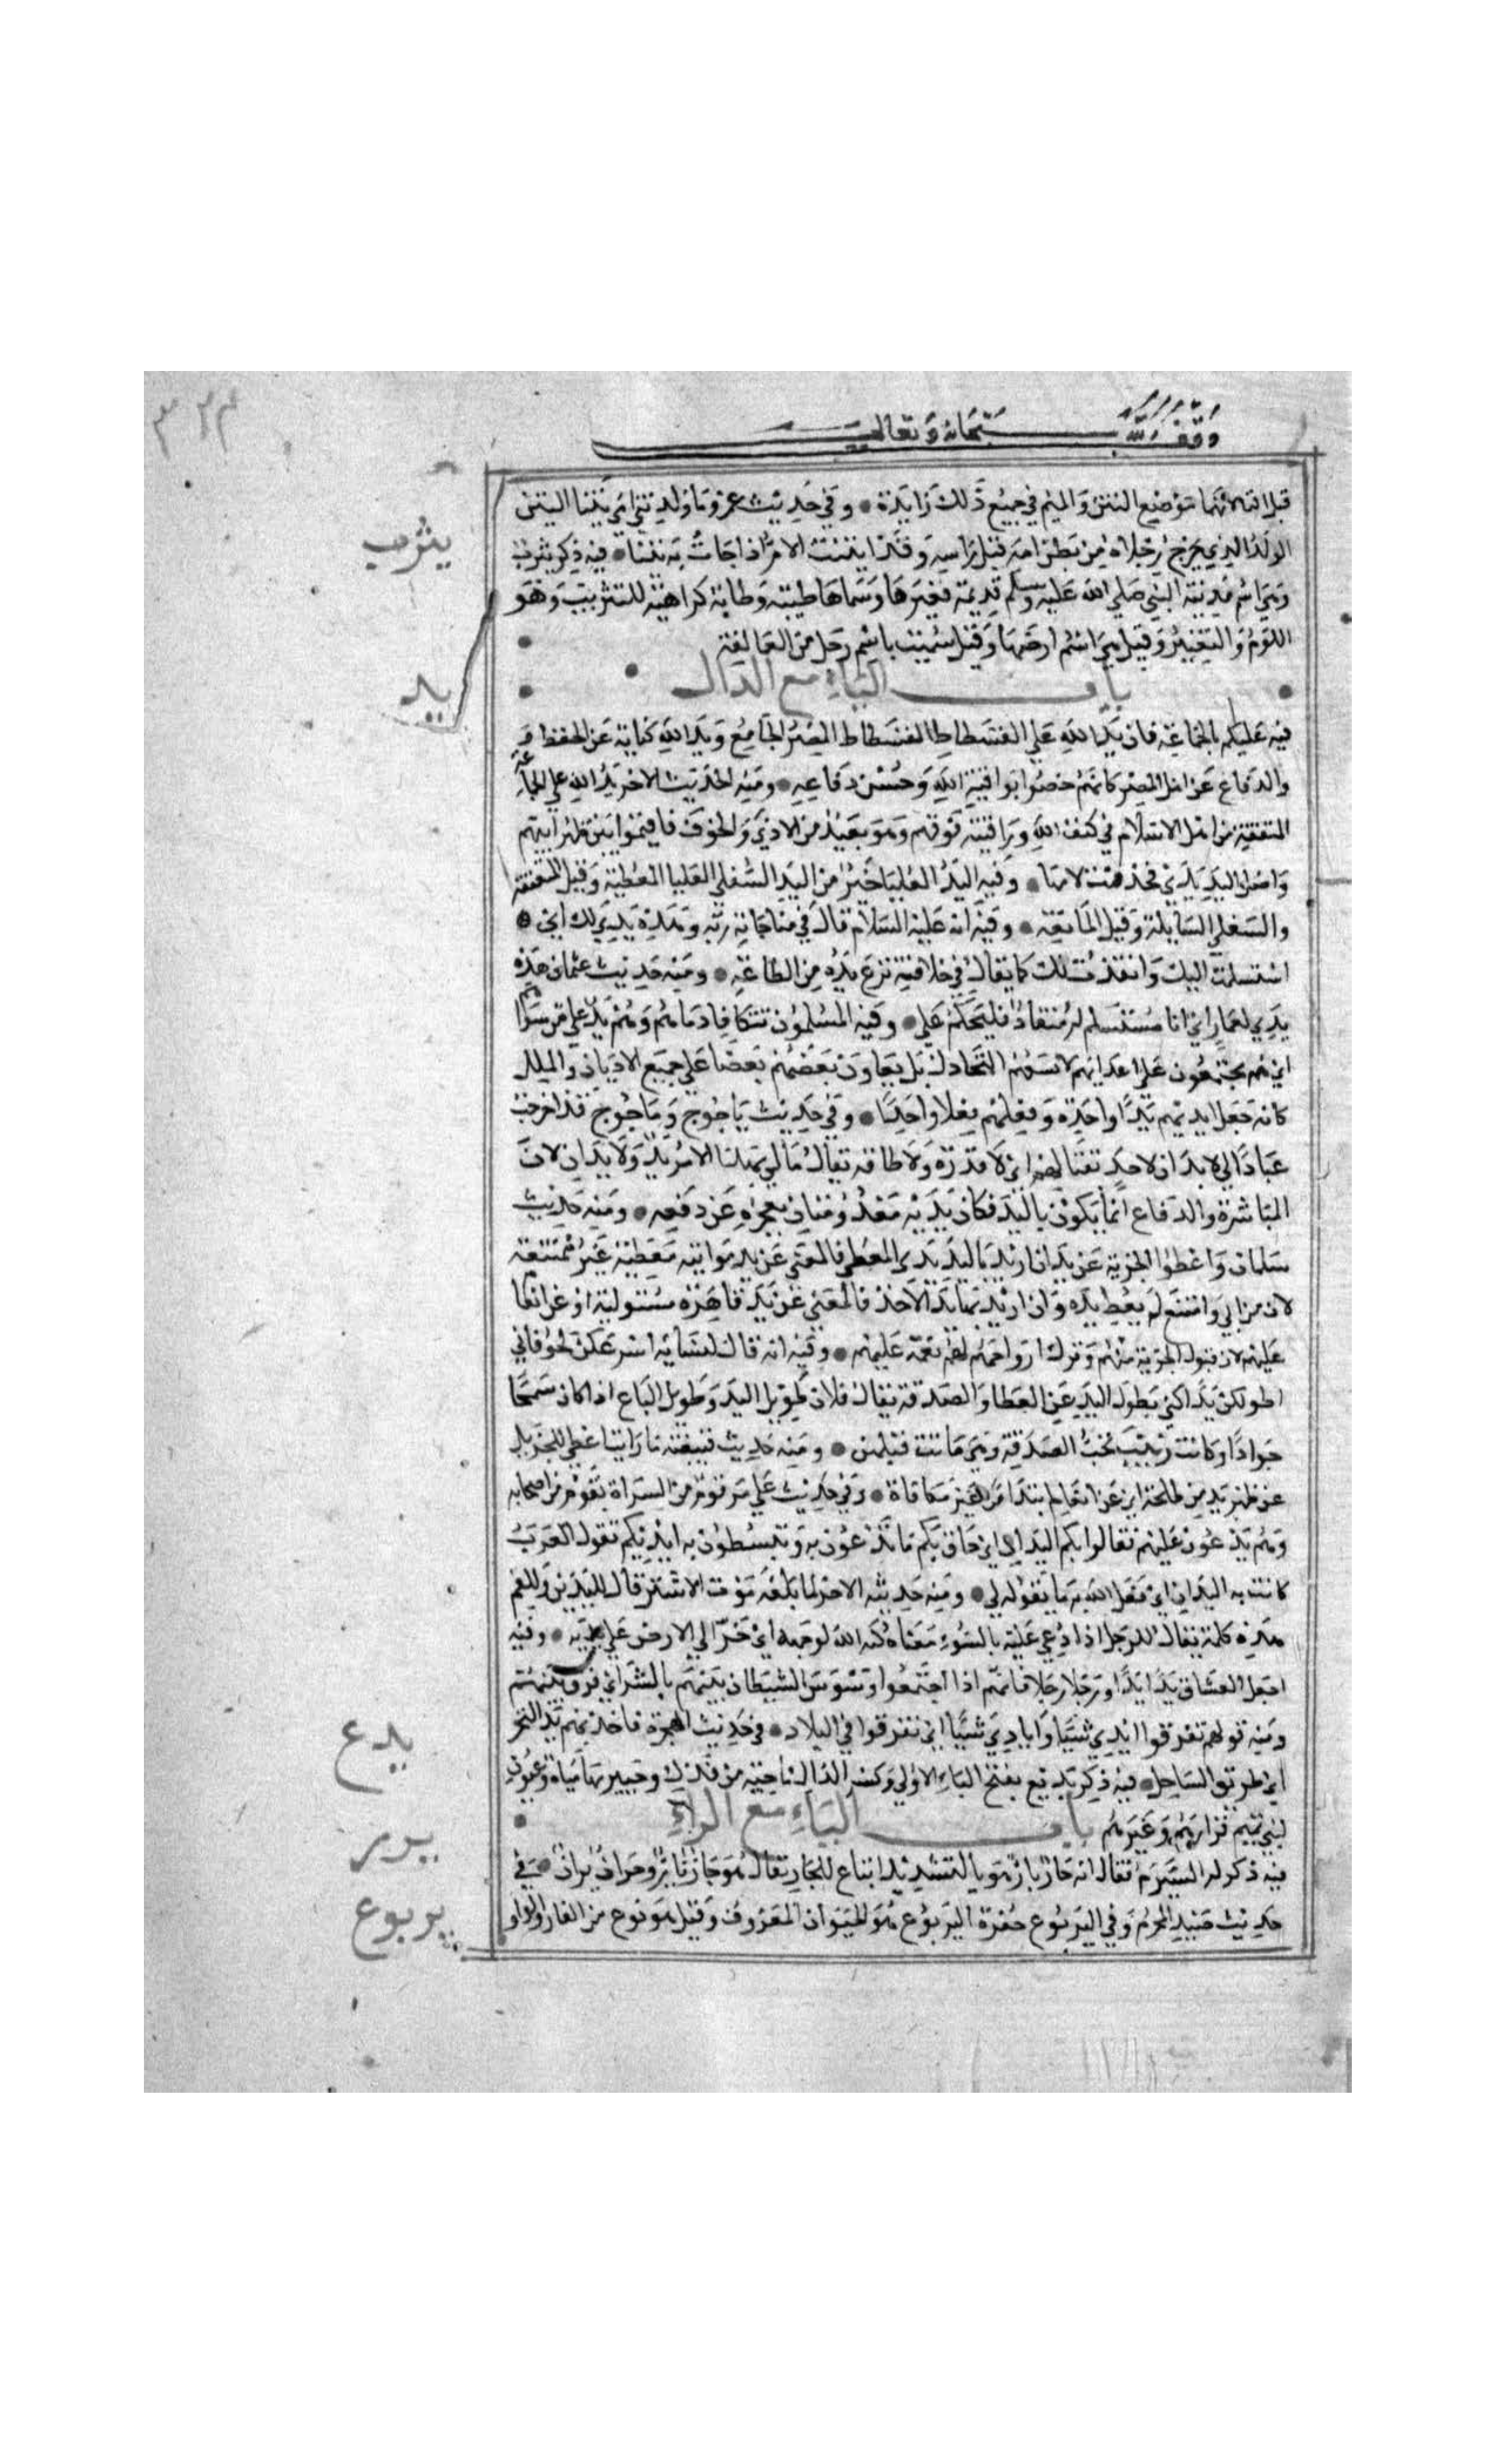 ٣٢٣
وقف لله سبحانه وتعالى
قبل لانهما موضع النتن والميم في جميع ذلك زايدة وفي حديث عمرو ما ولدتني امي يتنا اليتن
الولد الذي يخرج رجلاه من بطن امه قبل راسه وقد ايتنت الام اذا جاءت به يتنا فيه ذكر يثرب
وهي اسم مدينة النبي صلي الله عليه وسلم قديمة فغيرها وسماها طيبة وطابة كراهية للتثريب وهو
اللوم والتعيير وقيل هي اسم ارضها وقيل سميت باسم رجل من العمالقة
باب الياء مع الدال
فيه عليكم بالجماعة فان يد الله علي الفسطاط الفسطاط المصر الجامع ويد الله كناية عن الحفظ
والدفاع عن اهل المصر كانهم خصوا بواقية الله وحسن دفاعه ومنه الحديث الاخر يد الله علي الجماعة
المتفقة من اهل الاسلام في كنف الله وواقيته فوقهم وهو بعيد من الاذي والخوف فاقيموا بين ظهرانيهم
واصل اليد يدي فحذفت لامها وفيه اليد العليا خير من اليد السفلي العليا المعطية وقيل المتعففة
والسفلي السايلة وقيل المانعة وفيه انه عليه السلام قال في مناجاته ربه وهذه يدي لك اي
استسلمت اليك وانقدت لك كما يقال في خلافه نزع يده من الطاعة ومنه حديث عثمان هذه
يدي لعمار اي انا مستسلم له منقاد فليحتكم علي وفيه المسلمون تتكافا دماؤهم وهم يد علي من سواهم
اي هم مجتمعون علي اعدايهم لا يسعهم التخاذل بل يعاون بعضهم بعضا علي جميع الاديان والملل
كانه جعل ايديهم يدا واحدة وفعلهم فعلا واحدا وفي حديث ياجوج وماجوج قد اخرجت
عبادا لي لا يدان لاحد بقتالهم اي لا قدرة ولا طاقة يقال مالي بهذا الامر يد ولا يدان لان
المباشرة والدفاع انما يكون باليد فكان يديه معدومتان لعجزه عن دفعه ومنه حديث
سلمان واعطوا الجزية عن يد ان اريد باليد يد المعطي فالمعني عن يد مواتية معطية غير ممتنعة
لان من ابي وامتنع لم يعط يده وان اريد بها يد الآخذ فالمعني عن يد قاهرة مستولية او عن انعام
عليهم لان قبول الجزية منهم وترك ارواحهم لهم نعمة عليهم وفيه انه قال لنسايه اسرعكن لحوقا بي
اطولكن يدا كني بطول اليد عن العطا والصدقة يقال فلان طويل اليد وطويل الباع اذا كان سمحا
جوادا وكانت زينب تحب الصدقة وهي ماتت قبلهن ومنه حديث قبيصة ما رايت اعطي للجزيل
عن ظهر يد من طلحة اي عن انعام ابتداء من غير مكافاة وفي حديث علي مر قوم من السراة بقوم من اصحابه
وهم يدعون عليهم فقالوا بكم اليدان اي حاق بكم ما تدعون به وتبسطون به ايديكم تقول العرب
كانت به اليدان اي فعل الله به ما يقوله لي ومنه حديثه الاخر لما بلغه موت الاشتر قال لليدين وللفم
هذه كلمة يقال للرجل اذا دعي عليه بالسوء معناه كبه الله لوجهه اي خر الي الارض علي يديه وفيه
اجعل الفساق يدا يدا ورجلا رجلا فانهم اذا اجتمعوا وسوس الشيطان بينهم بالشر اي فرق بينهم
ومنه قولهم تفرقوا ايدي سبا وايادي سبا اي تفرقوا في البلاد في حديث الهجرة فاخذ بهم يد البحر
اي طريق الساحل فيه ذكر يديع بفتح الياء الاولي وكسر الدال ناحية من فدك وخيبر بها مياه وعيون
لبني تميم فزارة وغيرهم باب الياء مع الراء
فيه ذكر له الشبرم فقال انه حار يار هو بالتشديد اتباع للحار يقال هو حار يار وحران يران وفي
حديث صيد المحرم وفي اليربوع جفرة اليربوع هو الحيوان المعروف وقيل هو نوع من الفار والواو
يثرب
يد
يدع
يرر
يربوع